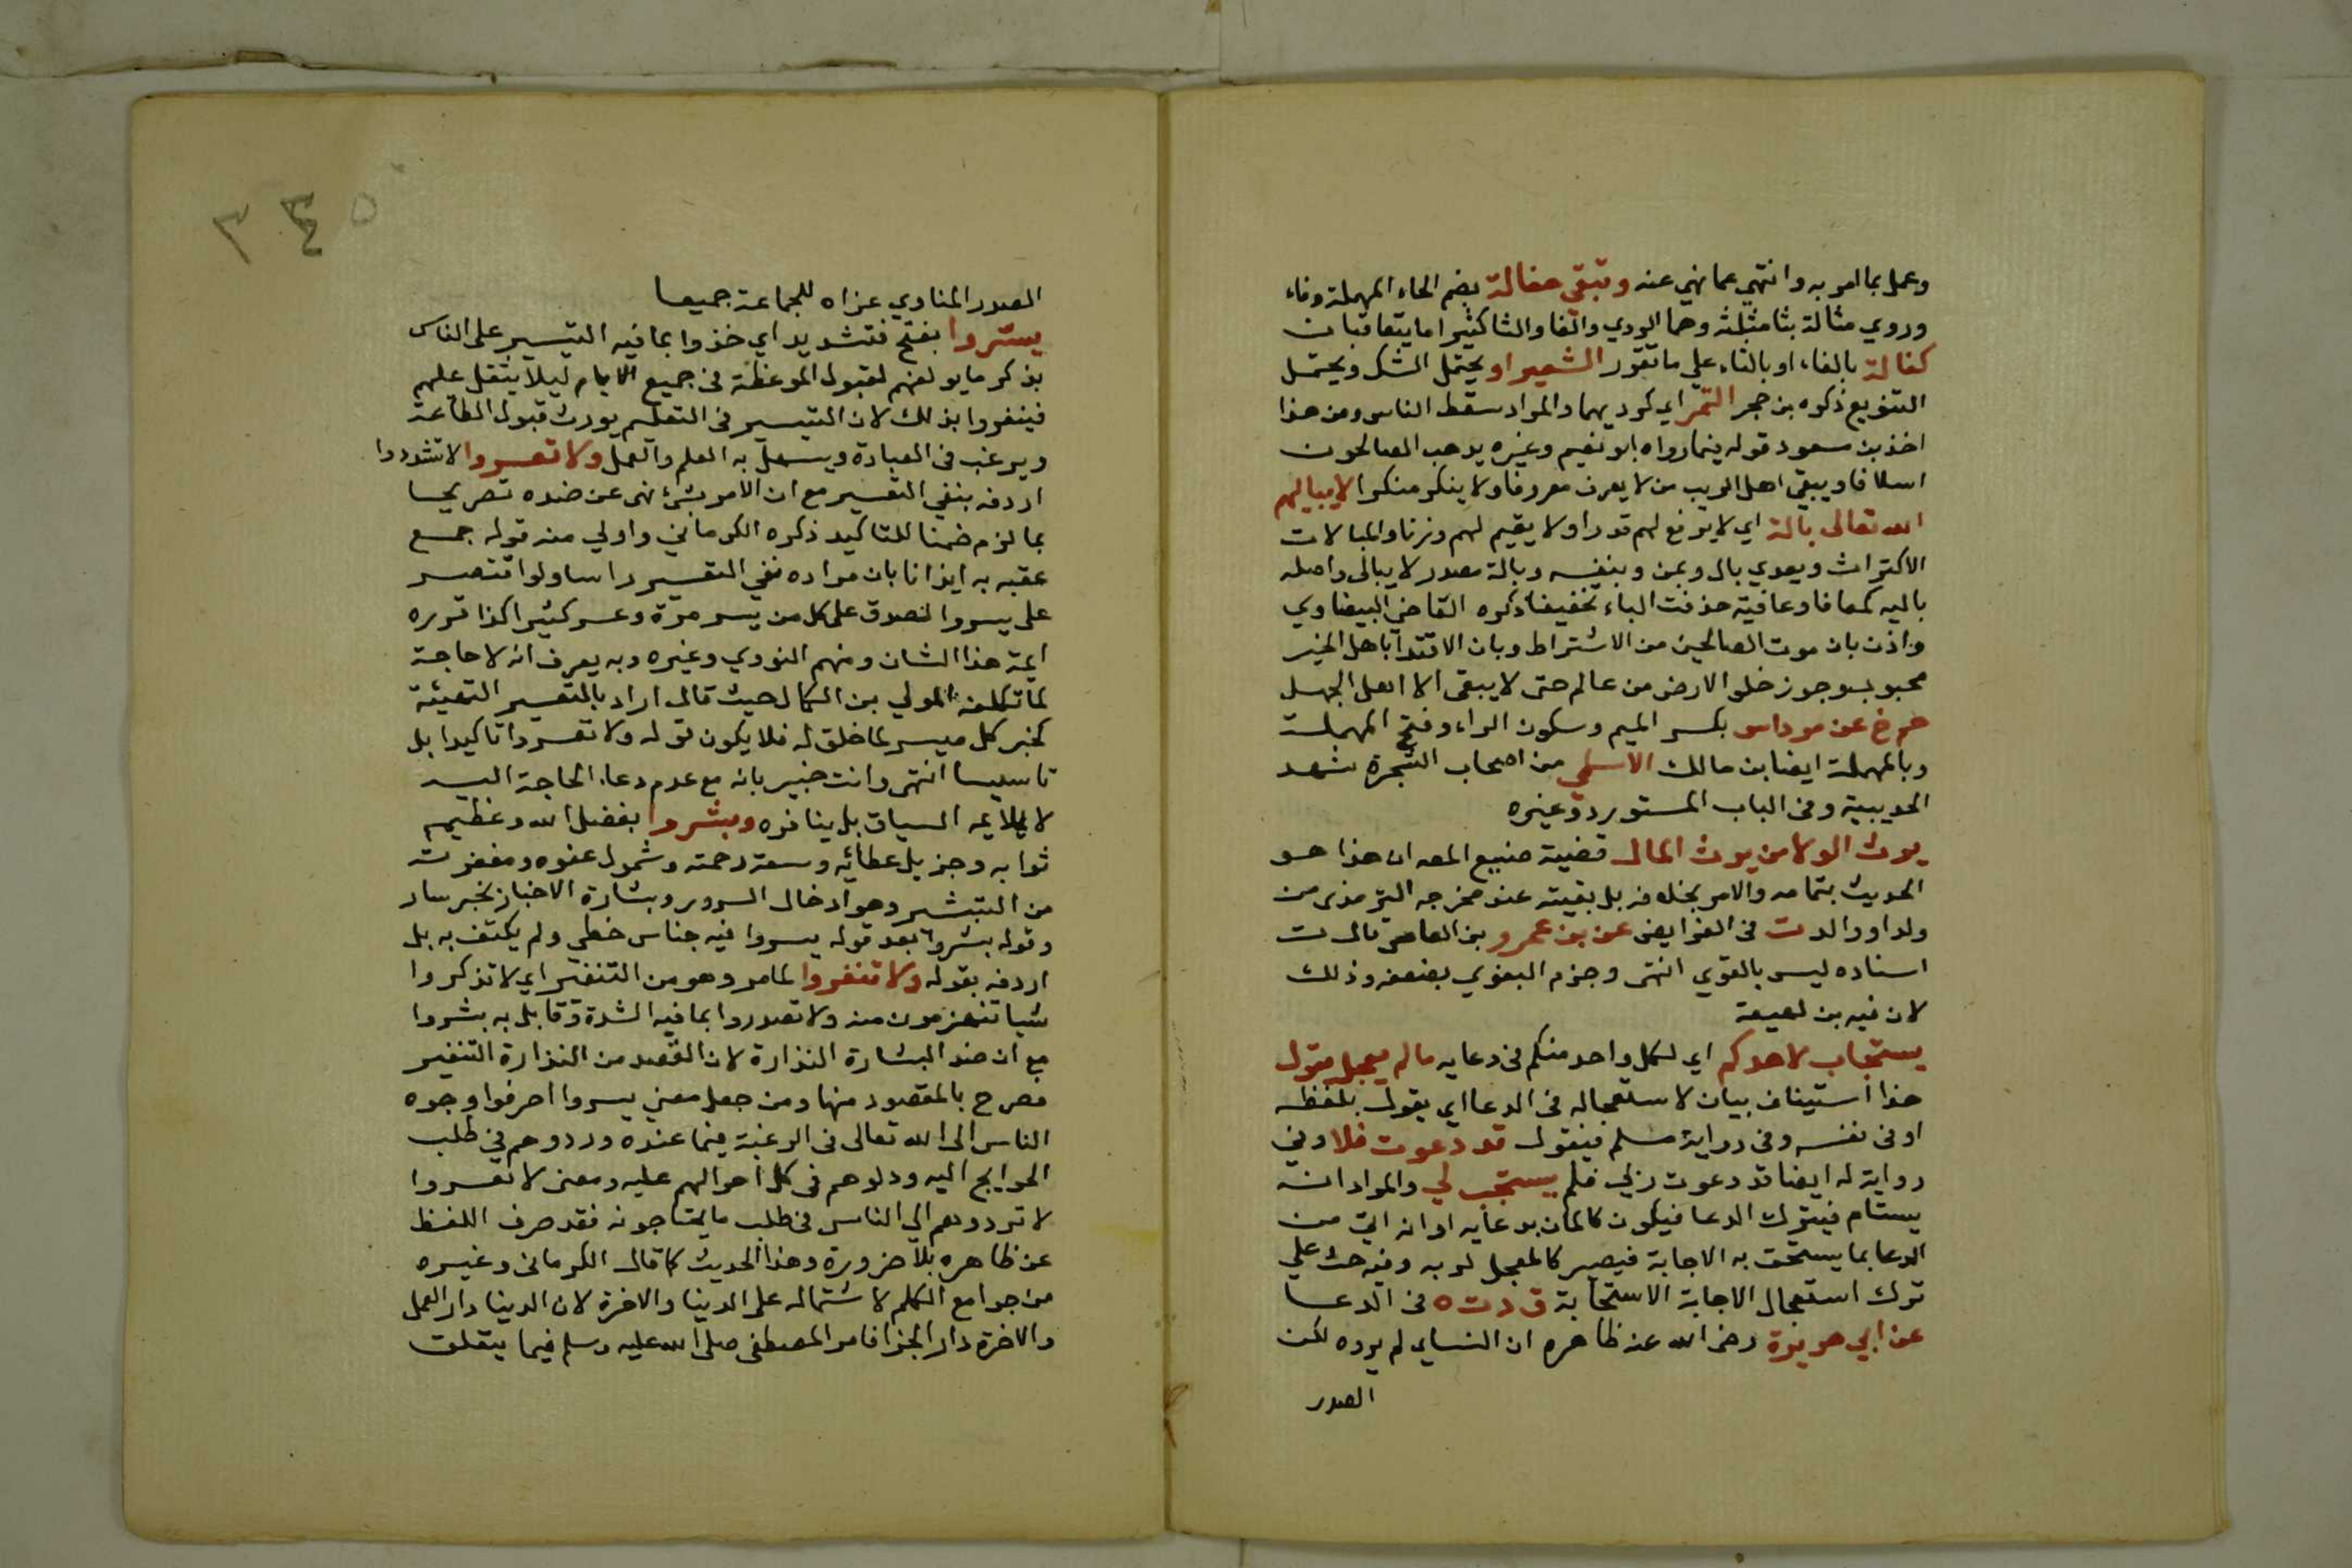 وعمل بما امر به وانتهى عما نهي عنه وتبقى حفالة بضم الحاء المهملة وفاء
وروي حثالة بثا مثلثة وهما الردي والفا والثا كثيرا ما يتعاقبان
كفالة بالفاء او بالثاء على ما تقور الشعير او يحتمل الشك ويحتمل
التنويع ذكره بن حجر التمر اي كرديهما والمراد سقط الناس ومن هذا
اخذ بن مسعود قوله فيما رواه ابو نعيم وغيره يذهب الصالحون
اسلافا ويبقى اهل الريب من لا يعرف معروفا ولا ينكر منكرا لا يباليهم
الله تعالى بالة اي لا يرفع لهم قدرا ولا يقيم لهم وزنا والمبالات
الاكتراث ويعدي بالباء وبعن وبنفسه وبالة مصدر لا يبالي واصله
باليه كمعافا وعافية حذفت الباء تخفيفا ذكره القاضي البيضاوي
واذن بان موت الصالحين من الاشتراط وبان الاقتدا باهل الخير
محبوب وجوز خلو الارض من عالم حتى لا يبقى الا اهل الجهل
حم خ عن مرداس بكسر الميم وسكون الراء وفتح المهملة
وبالمهملة ايضا بن مالك الاسلمي من اصحاب الشجرة شهد
الحديبية وفي الباب المستورد وغيره
يرث الولا من يرث المال قضية صنيع المص ان هذا هو
الحديث بتمامه والامر بخلافه بل بقيته عند مخرجه الترمذي من
ولد او والد ت في الفرايض عن بن عمرو بن العاص قال ت
اسناده ليس بالقوي انتهى وجزم البغوي بضعفه وذلك
لان فيه بن لهيعة
يستجاب لاحدكم اي لكل واحد منكم في دعايه ما لم يعجل يقول
هذا استيناف بيان لاستعجاله في الدعا اي يقول بلفظه
او في نفسه وفي رواية مسلم فيقول قد دعوت فلا وفي
رواية له ايضا قد دعوت ربي فلم يستجب لي والمراد انه
يسئام فيترك الدعا فيكون كالمان بدعايه او انه اتى من
الدعا بما يستحق به الاجابة فيصير كالمعجل لربه وفيه حث على
ترك استعجال الاجابة الاستجابة ق د ت ه في الدعا
عن ابي هريرة رضي الله عنه ظاهره ان النساي لم يروه لكن
الصدر
٣٤٥
الصدر المناوي عزاه للجماعة جميعا
يسروا بفتح فتشديد اي خذوا بما فيه التيسير على الناس
بذكر ما يولفهم لقبول الموعظة في جميع الايام ليلا يثقل عليهم
فينفروا بذلك لان التيسير في التعليم يورث قبول الطاعة
ويرغب في العبادة ويسهل به العلم والعمل ولا تعسروا لا تشددوا
اردفه بنفي التعسير مع ان الامر بشئ نهى عن ضده تصريحا
بما لزم ضمنا للتاكيد ذكره الكرماني واولى منه قول جمع
عقبه به ايذانا بان مراده نفي التعسير راسا ولو اقتصر
على يسروا لصدق على كل من يسر مرة وعسر كثيرا كذا قرره
ايمة هذا الشان ومنهم النووي وغيره وبه يعرف انه لا حاجة
لما تكلفه المولى بن الكمال حيث قال اراد بالتعسير التعيئة
كخبر كل ميسر لما خلق له فلا يكون قوله ولا تعسروا تاكيدا بل
تاسيسا انتهى وانت خبير بانه مع عدم دعاء الحاجة اليه
لا يلايمه السياق بل ينافره وبشروا بفضل الله وعظيم
ثوابه وجزيل عطائه وسعة رحمته وشمول عفوه ومغفرته
من التبشير وهو ادخال السرور وبشارة الاخبار بخبر سار
وقوله بشروا بعد قوله يسروا فيه جناس خطي ولم يكتف به بل
اردفه بقوله ولا تنفروا لما مر وهو من التنفير اي لا تذكروا
شيا تنهزمون منه ولا تصدروا بما فيه الشدة وقابل به بشروا
مع ان ضد البشارة النذارة لان القصد من النذارة التنفير
فصرح بالمقصود منها ومن جعل معنى يسروا اصرفوا وجوه
الناس الى الله تعالى في الرغبة فيما عنده وردوهم في طلب
الحوايج اليه ودلوهم في كل احوالهم عليه ومعنى لا تعسروا
لا تردوهم الى الناس في طلب ما يحتاجونه فقد صرف اللفظ
عن ظاهره بلا ضرورة وهذا الحديث كما قال الكرماني وغيره
من جوامع الكلم لاشتماله على الدنيا والاخرة لان الدنيا دار العمل
والاخرة دار الجزا فامر المصطفى صلى الله عليه وسلم فيما يتعلق